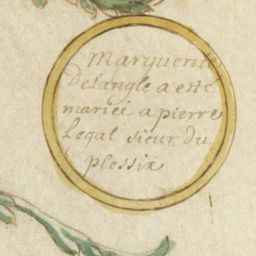 Marguerite
Delangle a esté
mariéé a pierre
Legal sieur du
plessix